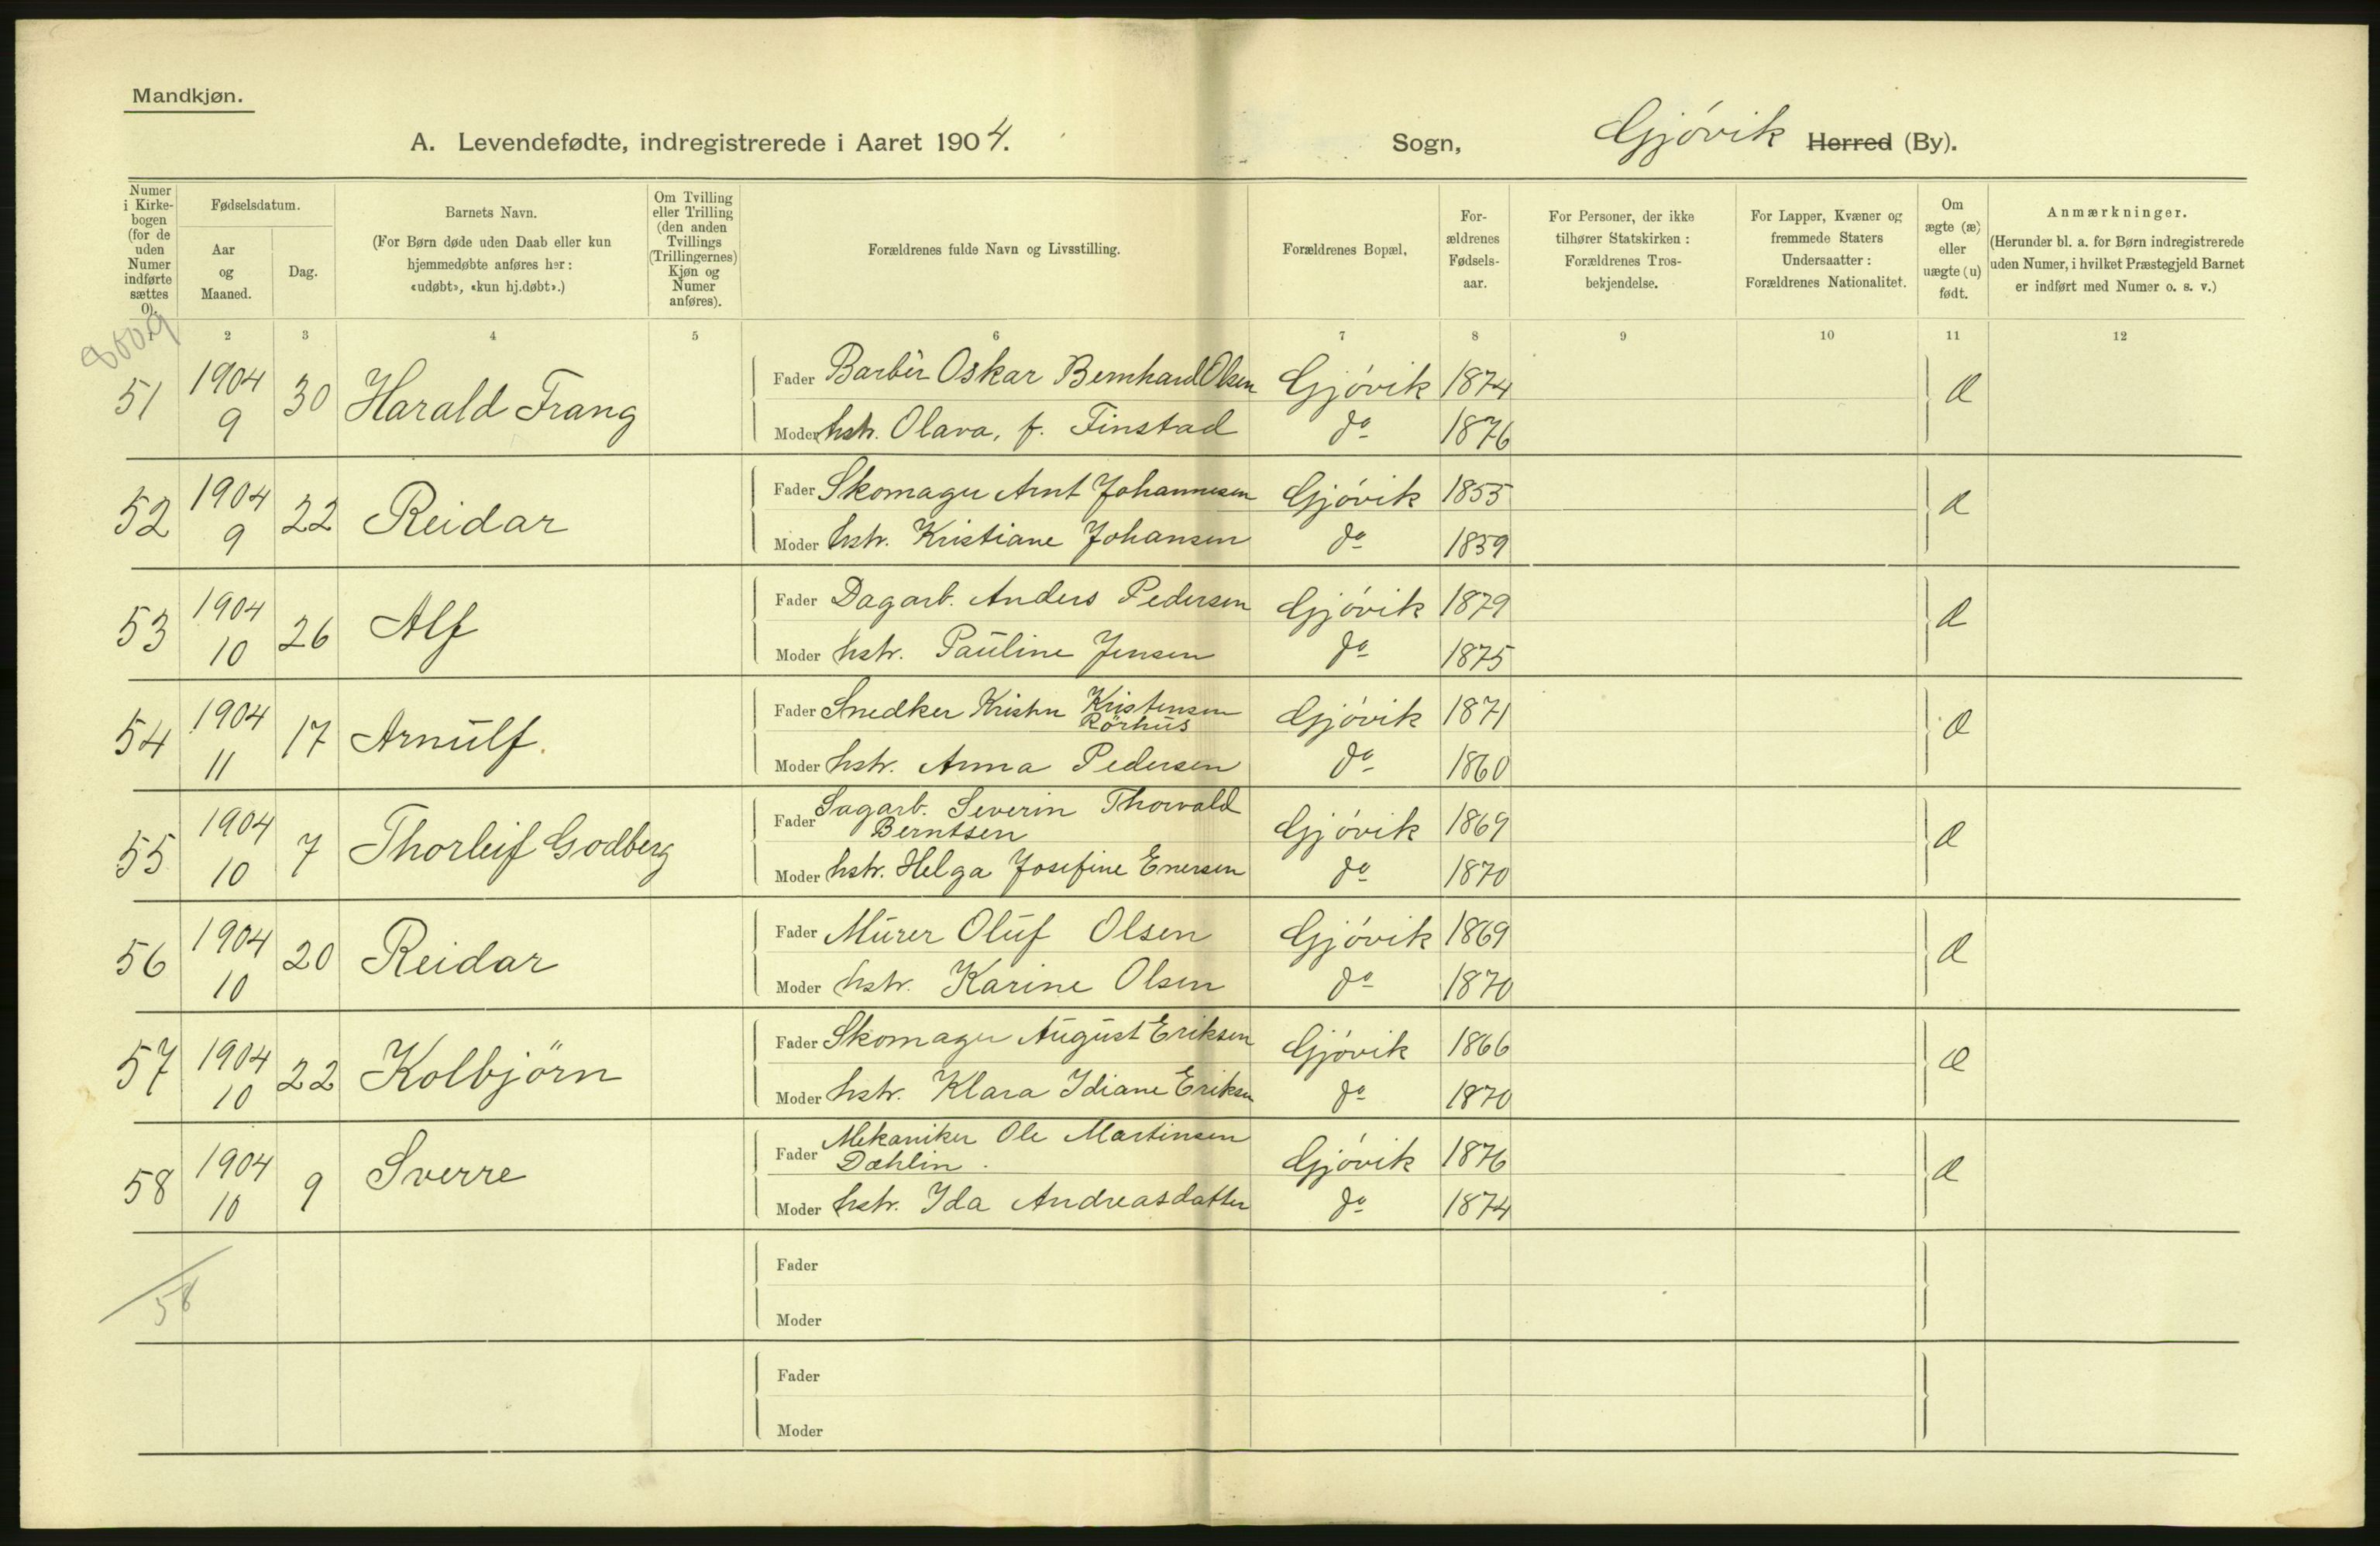 Mandkjøn.
A. Levendefødte, indregistrerede i Aaret 1904. Sogn, Gjövik Herred (By).
Numer i Kirkebogen (for de uden Numer indførte sættes 0).
Fødselsdatum.
Aar og Maaned.
Dag.
Barnets Navn.
(For Børn døde uden Daab eller kun hjemmedøbte anføres her: «udøbt», «kun hj.døbt».)
Om Tvilling eller Trilling (den anden Tvillings (Trillingernes) Kjøn og Numer anføres).
Forældrenes fulde Navn og Livsstilling.
Forældrenes Bopæl,
Forældrenes Fødselsaar.
For Personer, der ikke tilhører Statskirken: Forældrenes Trosbekjendelse.
For Lapper, Kvæner og fremmede Staters Undersaatter: Forældrenes Nationalitet.
Om ægte (æ) eller uægte (u) født.
Anmærkninger.
(Herunder bl. a. for Børn indregistrerede uden Numer, i hvilket Præstegjeld Barnet er indført med Numer o. s. v.)
2 3 4 5 6 7 8 9 10 11 12
51 1904 9 30 Harald Frang Fader Barbér Oskar Bernhard Olsen Gjövik 1874 Æ
Moder hstr. Olava, f. Finstad do 1876
52 1904 9 22 Reidar Fader Skomager Arnt Johannesen Gjövik 1855 Æ
Moder hstr. Kristiane Johansen do 1859
53 1904 10 26 Alf Fader Dagarb. Anders Pedersen Gjövik 1879 Æ
Moder hstr. Pauline Jensen do 1875
54 1904 11 17 Arnulf. Fader Snedker Kristen Kristensen Rörhus Gjövik 1871 Æ
Moder hstr. Anna Pedersen do 1860
55 1904 10 7 Thorleif Godberg Fader Sagarb. Severin Thorvald Berntsen Gjövik 1869 Æ
Moder hstr. Helga Josefine Enersen do 1870
56 1904 10 20 Reidar Fader Murer Oluf Olsen Gjövik 1869 Æ
Moder hstr. Karine Olsen do 1870
57 1904 10 22 Kolbjörn Fader Skomager August Eriksen Gjövik 1866 Æ
Moder hstr. Klara Idiane Eriksen do 1870
58 1904 10 9 Sverre Fader Mekaniker Ole Martinsen Dæhlin. Gjövik 1876 Æ
Moder hstr. Ida Andreasdatter do 1874
Fader
58
Moder
Fader
Moder